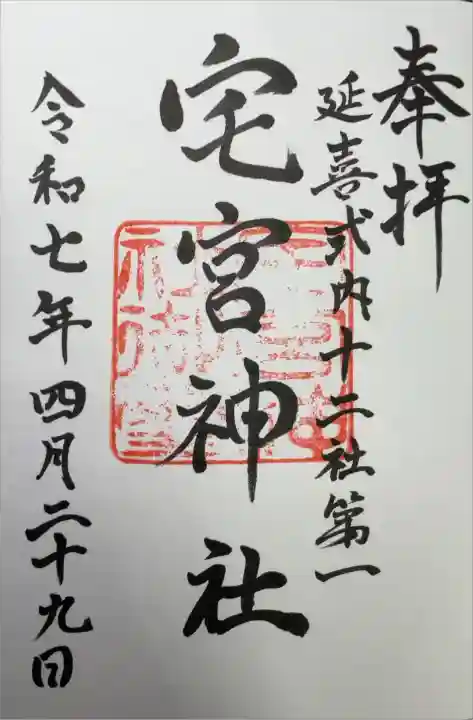 奉拝
延喜式内十二社第一
宅宮神社
令和七年四月二十九日